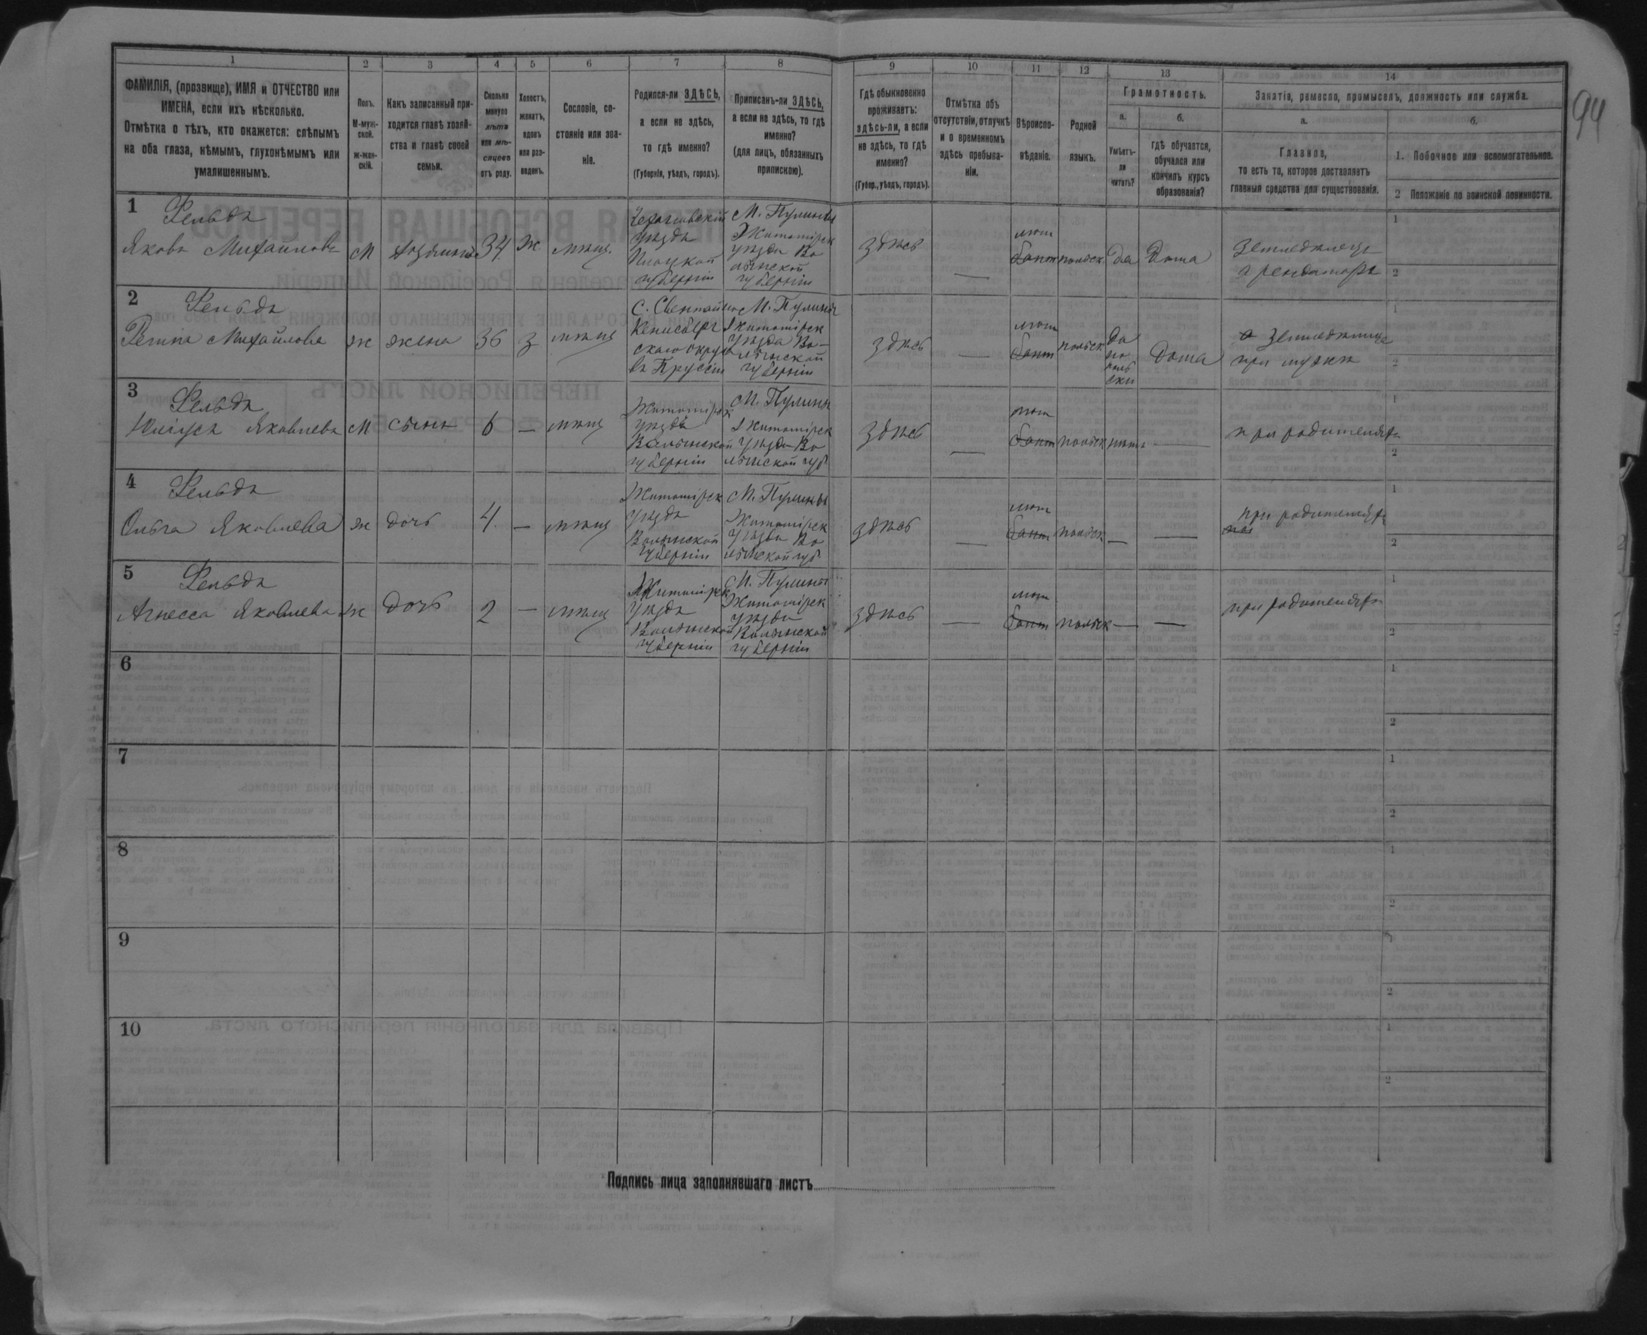 1 2 3 4 5 6 7 8 9 10 11 12 13 14
ФАМИЛІЯ, (прозвище), ИМЯ и ОТЧЕСТВО или
ИМЕНА, если ихъ нѣсколько.
Отмѣтка о тѣхъ, кто окажется: слѣпымъ
на оба глаза, нѣмымъ, глухонѣмымъ или
умалишеннымъ.
Полъ.
М-муж-
ской.
ж-жен-
скій.
Какъ записанный при-
ходится главѣ хозяй-
ства и главѣ своей
семьи.
Сколько
минуло
лѣтъ
или мѣ-
сяцевъ
отъ роду.
Холостъ,
женатъ,
вдовъ
или раз-
веденъ.
Сословіе, со-
стояніе или зва-
ніе.
Родился-ли ЗДѢСЬ,
а если не здѣсь,
то гдѣ именно?
(Губернія, уѣздъ, городъ).
Приписанъ-ли ЗДѢСЬ,
а если не здѣсь, то гдѣ
именно?
(для лицъ, обязанныхъ
припискою).
Гдѣ обыкновенно
проживаетъ:
здѣсь-ли, а если
не здѣсь, то гдѣ
именно?
(Губер., уѣздъ, городъ).
Отмѣтка объ
отсутствіи, отлучкѣ
и о временномъ
здѣсь пребыва-
ніи.
Вѣроиспо-
вѣданіе.
Родной
языкъ.
Грамотность.
а.
Умѣетъ-
ли
читать?
б.
гдѣ обучается,
обучался или
кончилъ курсъ
образованія?
Занятіе, ремесло, промыселъ, должность или служба.
а.
Главное,
то есть то, которое доставляетъ
главныя средства для существованія.
б.
1. Побочное или вспомогательное.
2 Положеніе по воинской повинности.
94
1 Фельдъ
Яковъ Михайловъ м хозяинъ 34 ж мѣщ.
уѣзда
Плоцкой
губерніи
М. Пулины
Житомірск
уѣзда Во
лынской
губерніи
здѣсь — лют польск да дома
Земледѣлецъ
арендаторъ
1
2
2 Фельдъ
Михайлова ж жена 36 з мѣщ
въ Пруссіи
М. Пулины
Житомірск
уѣзда Во-
лынской
губерніи
здѣсь — лют польск
да
по
поль
ски
дома
земледѣлица
при мужѣ
1
2
3 Фельдъ
Юліусъ Яковлевъ м сынъ 6 — мѣщ
Житомірск
уѣзда
Волынской
губерніи
М. Пулины
Житомірск
уѣзда Во
лынской губ
здѣсь — лют польск нѣтъ —
при родителяхъ
1
2
4 Фельдъ
Ольга Яковлева ж дочь 4 — мѣщ
Житомірск
уѣзда
Волынской
губерніи
М. Пулины
Житомірск
уѣзда Во
лынской губ
здѣсь — лют польск — —
при родителяхъ
1
2
5 Фельдъ
Агнесса Яковлева ж дочь 2 — мѣщ
Житомірск
уѣзда
Волынской
губерніи
М. Пулины
Житомірск
уѣзда
Волынской
губерніи
здѣсь — лют польск — —
при родителяхъ
1
2
6
1
2
7
1
2
8
1
2
9
1
2
10
1
2
Подпись лица заполнявшаго листъ